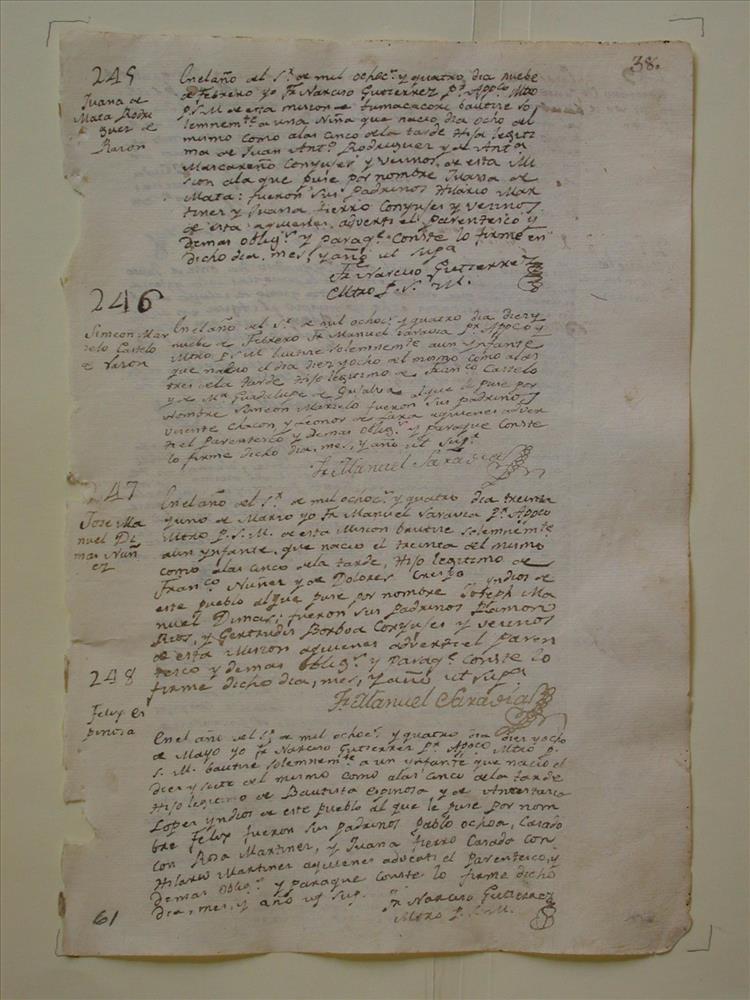 38.
245
Juana de
Mata Rodri
guez de
Razon
En el año del Sr. de mil ochoc.s y quatro, dia nuebe
de Febrero yo Fr. Narciso Gutierrez Pr. Appco. Mtro
P. S. M. de esta mision de Tumacacori bautize so
lemnemte. a una Niña que nacio dia ocho del
mismo como a las cinco de la tarde Hija legiti
ma de Juan Anto. Rodriguez y de Anta.
Mascareño Conyuges y vecinos de esta Mi
sion a la que puse por nombre Juana de
Mata: fueron sus Padrinos Hilario Mar
tinez y Juana fierro Conyuges y vecinos
de esta aquienes adverti el parentesco y
demas oblig.s y paraq.e Conste lo firme en
dicho dia, mes, y año ut supa
Fr. Narciso Gutierrez
Mtro P. S. M.
246
Simeon Mar
zelo Castelo
de razon
En el año del Sr. de mil ochoc.s y quatro dia diez y
nuebe de Febrero Fr. Manuel Saravia Pr. Appco y
Mtro P. S. M. bautize solemnemte a un ynfante
que nacio el dia diez y ocho del mismo como a las
tres de la tarde Hijo legitimo de Franco Castelo
y de Ma. Guadalupe de Grijalva al que le puse por
Nombre Simeon Marzelo fueron sus padrinos
Vicente Chacon, y Leonor de Lara aquienes adver
ti el parentesco y demas oblig.s y paraque Conste
lo firme dicho dia, mes, y año ut sup.a
Fr. Manuel Saravia
247
Jose Ma
nuel Di
mas Nuñ
ez
En el año del Sr. de mil ochoc.s y quatro dia treinta
y uno de Marzo yo Fr. Manuel Saravia Pr. Appco
Mtro P. S. M. de esta Mision bautize solemnemte
a un ynfante, que nacio el treinta del mismo
como a las cinco de la tarde, Hijo legitimo de
Franco. Nuñez y de Dolores Crespo yndios de
este pueblo al que puse por nombre Joseph Ma
nuel Dimas; fueron sus Padrinos Ramon
Rios, y Gertrudis Borboa Conyuges y vecinos
de esta Mision aquienes adverti el paren
tesco y demas oblig.s y paraq.e conste lo
firme dicho dia, mes, y año ut sup.a
Fr. Manuel Saravia
248
Felix Es
pinosa
En el año del Sr. de mil ochoc.s y quatro dia diez y ocho
de Mayo yo Fr. Narciso Gutierrez Pr. Appco. Mtro P.
S. M. bautize solemnemte a un ynfante que nacio el
diez y siete del mismo como a las cinco de la tarde
Hijo legitimo de Bautista Espinosa y de Anastasia
Lopez yndios de este pueblo al que le puse por nom
bre Felix fueron sus padrinos Pablo ochoa, Casado
con Rosa Martinez, y Juana fierro Casada con
Hilario Martinez aquienes adverti el Parentesco, y
demas oblig.s y paraque Conste lo firme dicho
dia, mes, y año ut sup.
Fr. Narciso Gutierrez
Mtro P. S. M.
61